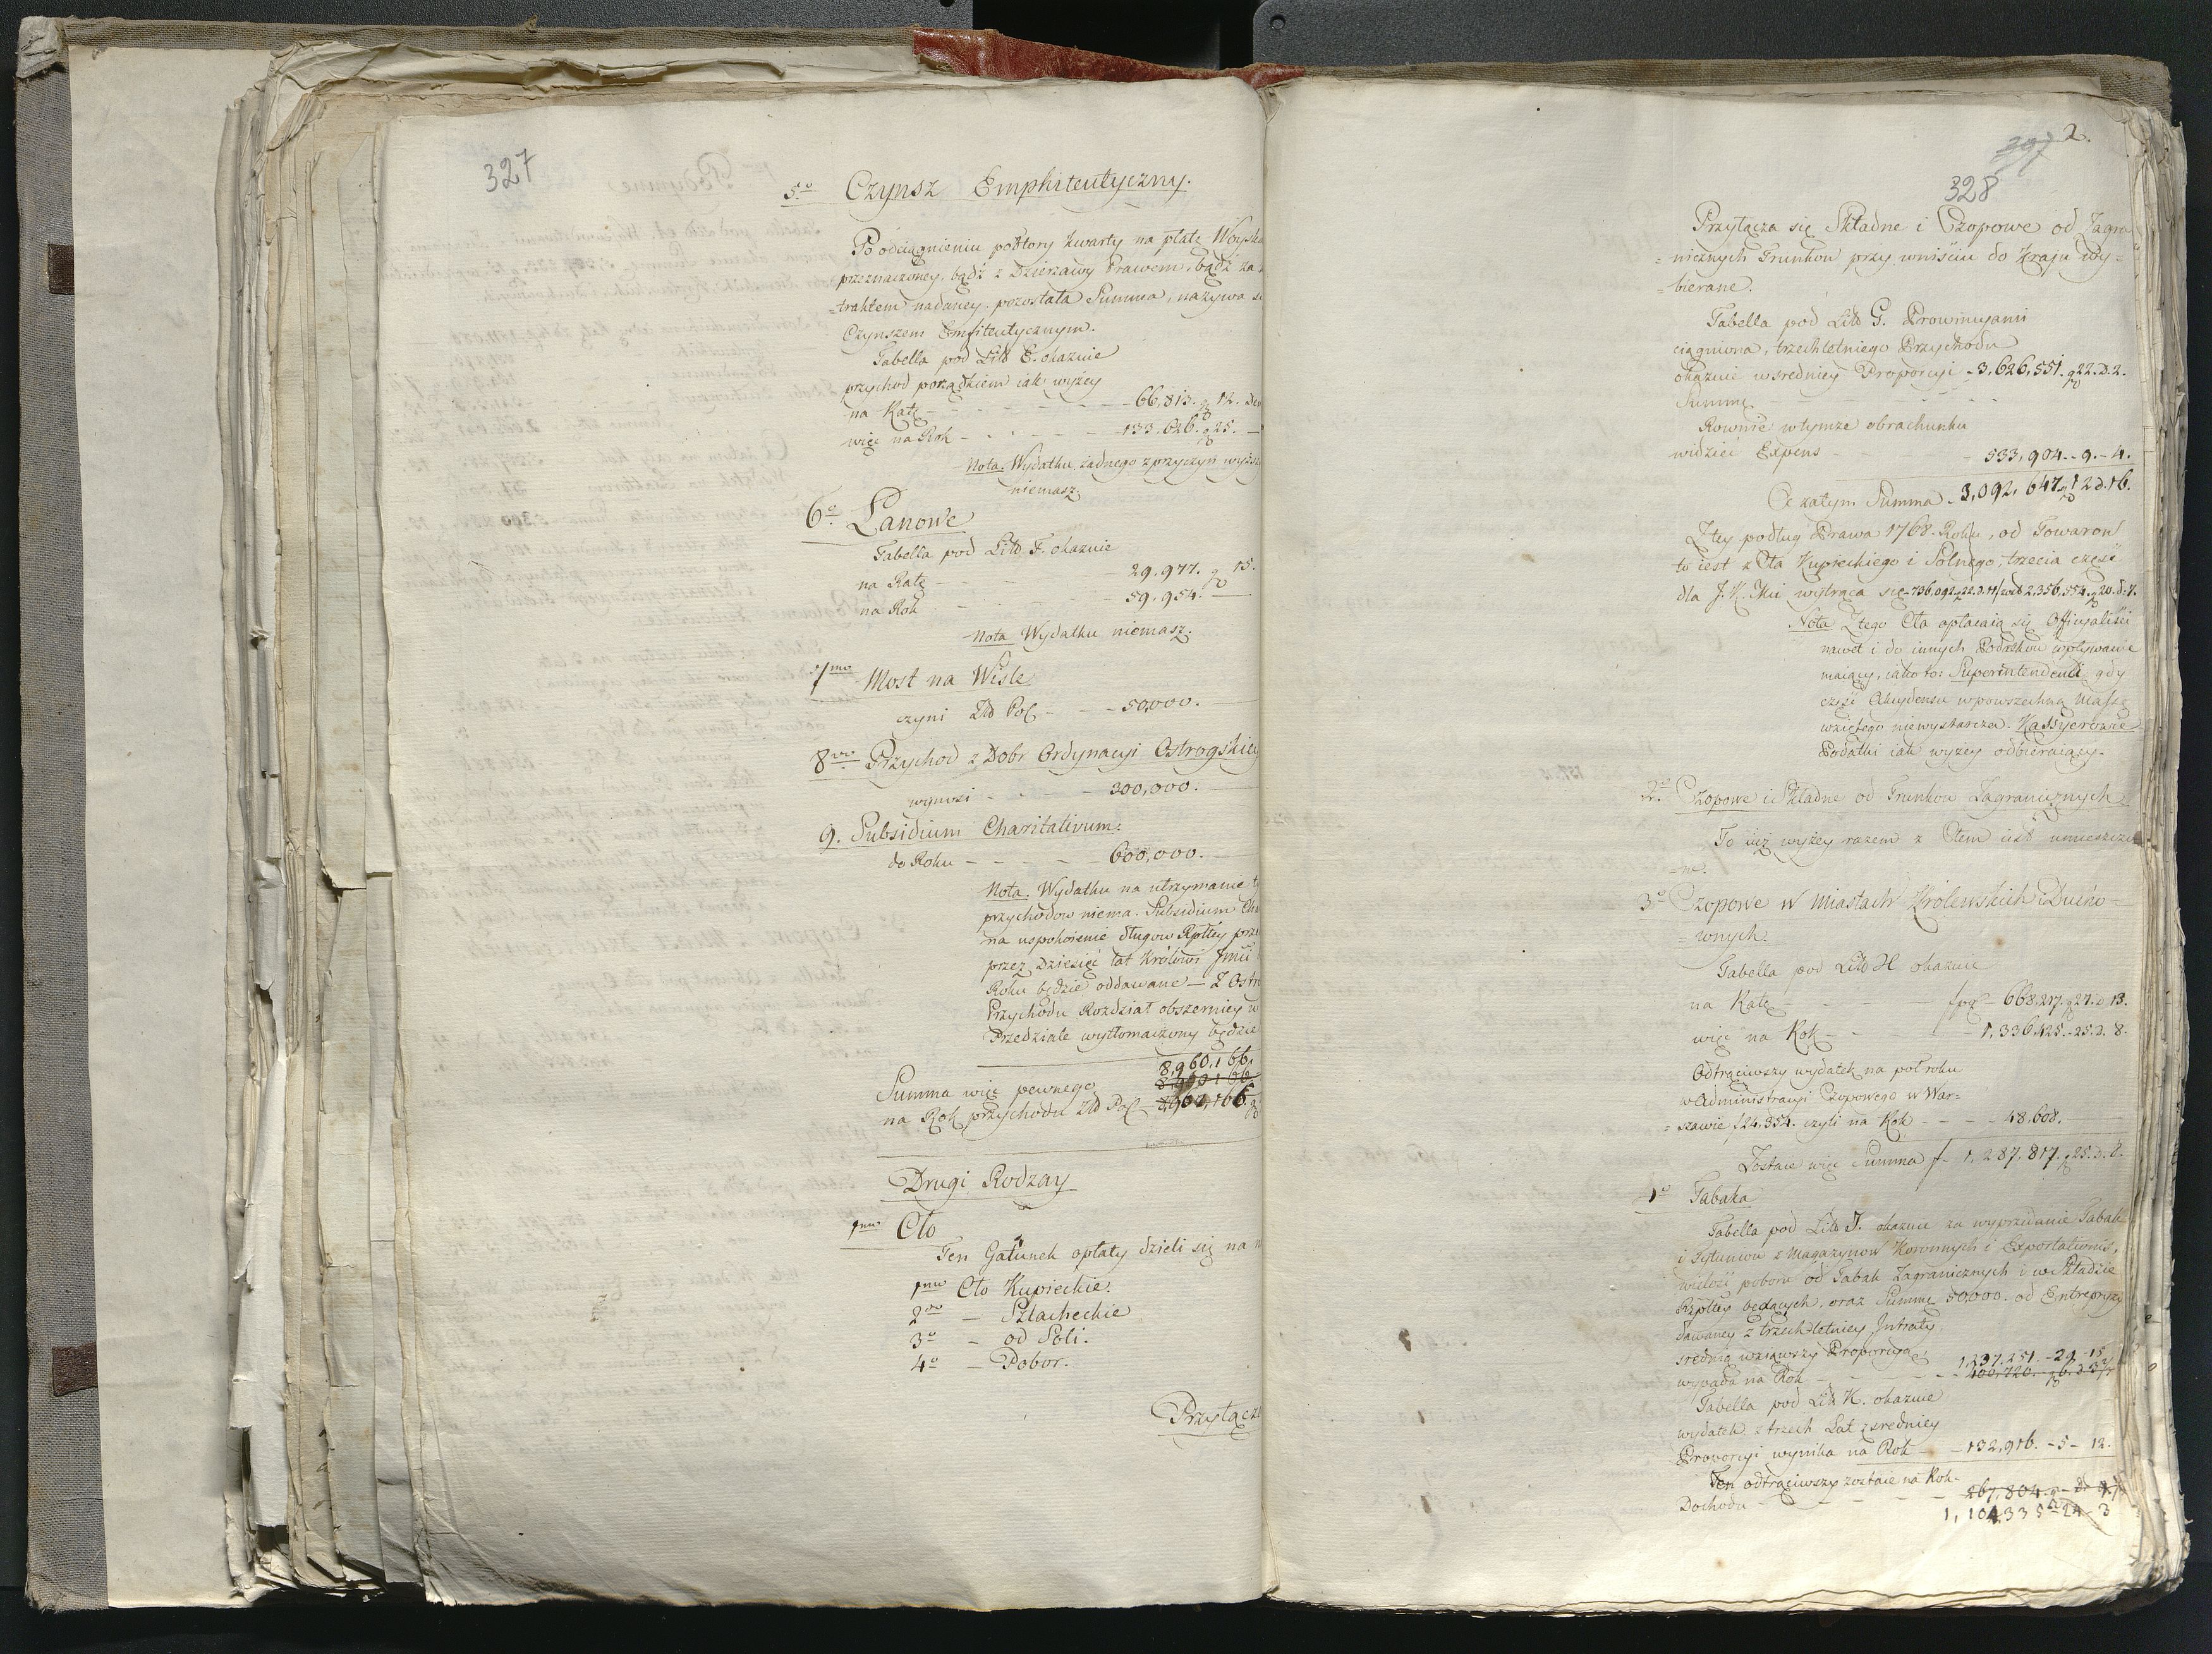 327
5º Czynsz Emphiteutyczny.
Po odciągnieniu połtory kwarty na płatę Woyska
przeznaczoney, bądź z Dzierżawy Prawem, bądź za
=traktem nadaney, pozostała Summa, nazywa
Czynszem Emfiteutycznym.
Tabella pod Litt E. okazuie
przychod porządkiem iak wyżey
na Ratę - - - 66,813. gr 12.
więc na Rok - - - 133.626. gr 25. -
Nota. Wydatku, żadnego z przyczyn wyższ
niemasz.
6º Łanowe
Tabella pod Litt. F. okazuie
na Ratę - - 29.977. gr 15.
na Rok - - 59.954. -
Nota Wydatku niemasz.
7mo Most na Wiśle
czyni Złł Pol - - 50,000.
8vo Przychod z Dobr Ordynacyi Ostrogskiey
wynosi - - - 300,000.
9. Subsidium Charitativum.
do Roku - - - 600,000.
Nota. Wydatku na utrzymanie
przychodow niema. Subsidium
na uspokoienie długow Rpltey
przez Dziesięć lat Krolowi Jmci
Roku będzie oddawane - Z Ostro
Przychodu Rozdział obszerniey w
Przedziale wytłomaczony będzie
8,960,166.
Summa więc pewnego
na Rok przychodu Złł Pol
Drugi Rodzay
1mo Cło
Ten Gatunek opłaty dzieli się na
1mo Cło Kupieckie.
2do - Szlacheckie
3º - od Soli.
4º - Pobor.
Przyłącza
2.
328
Przyłącza się Składne i Czopowe od Zagra
=nicznych Trunkow przy wniściu do Kraju wy=
=bierane.
Tabella pod Litt G. Prowincyami
ciągniona, trzechletniego Przychodu
okazuie w sredniey Proporcyi - 3,626,551. gr 22. d. 2.
Summę - - -
Rownie w tymże obrachunku
widzieć Expens - - 533,904. - 9. - 4.
Cc zatym Summa - 3,092,647. gr 12 d. 16.
Z tey podług Prawa 1768. Roku, od Towarow
to iest z Cła Kupieckiego i Solnego, trzecia część
dla J. K. Mci wytrąca się - 736,092 22. d. 11/ zost 2,356,554. gr 20. d. 7.
Nota. Z tego Cła opłacaią się Officyaliści
nawet i do innych Podatkow wpływanie
maiący, iako to: Superintendenci, gdy
część Akcydensu w powszechną Massę
wziętego niewystarcza. Kassyerowie
Podatki iak wyżey odbieraiący.
2º Czopowe i Składne od Trunkow Zagranicznych
To iuż wyżey razem z Cłem iest umieszczo
=ne.
3º Czopowe w Miastach Królewskich i Ducho=
=wnych.
Tabella pod Litt H okazuie
na Ratę - - - 668,217. gr 27. d. 13.
więc na Rok - - 1,336,425. - 25. d. 8.
Odtrąciwszy wydatek na poł roku
w Administracyi Czopowego w War=
=szawie f 24,354. czyli na Rok - - - 48,608.
Zostaie więc Summa f - 1,287,817. gr 25. d. 8.
1º Tabaka
Tabella pod Litt J. okazuie za wyprzedanie Tabak
i Tytuniow z Magazynow Koronnych i Exportationis,
wielość poboru od Tabak Zagranicznych i w Składzie
Rzpltey będących, oraz Summę 50,000. od Entrepryzy
dawaney z trzechletniey Intraty
srednią wziąwszy Proporcyą 1,237,251. - 29. - 15
wypada na Rok - - - 400,720.
Tabella pod Litt K. okazuie
wydatek z trzech Lat z sredniey
Proporcyi wynika na Rok - 132,916. - 5 - 12.
Ten odtrąciwszy zostaie na Rok
Dochodu - - - 267,804.
1,104,335 - 24 - 3